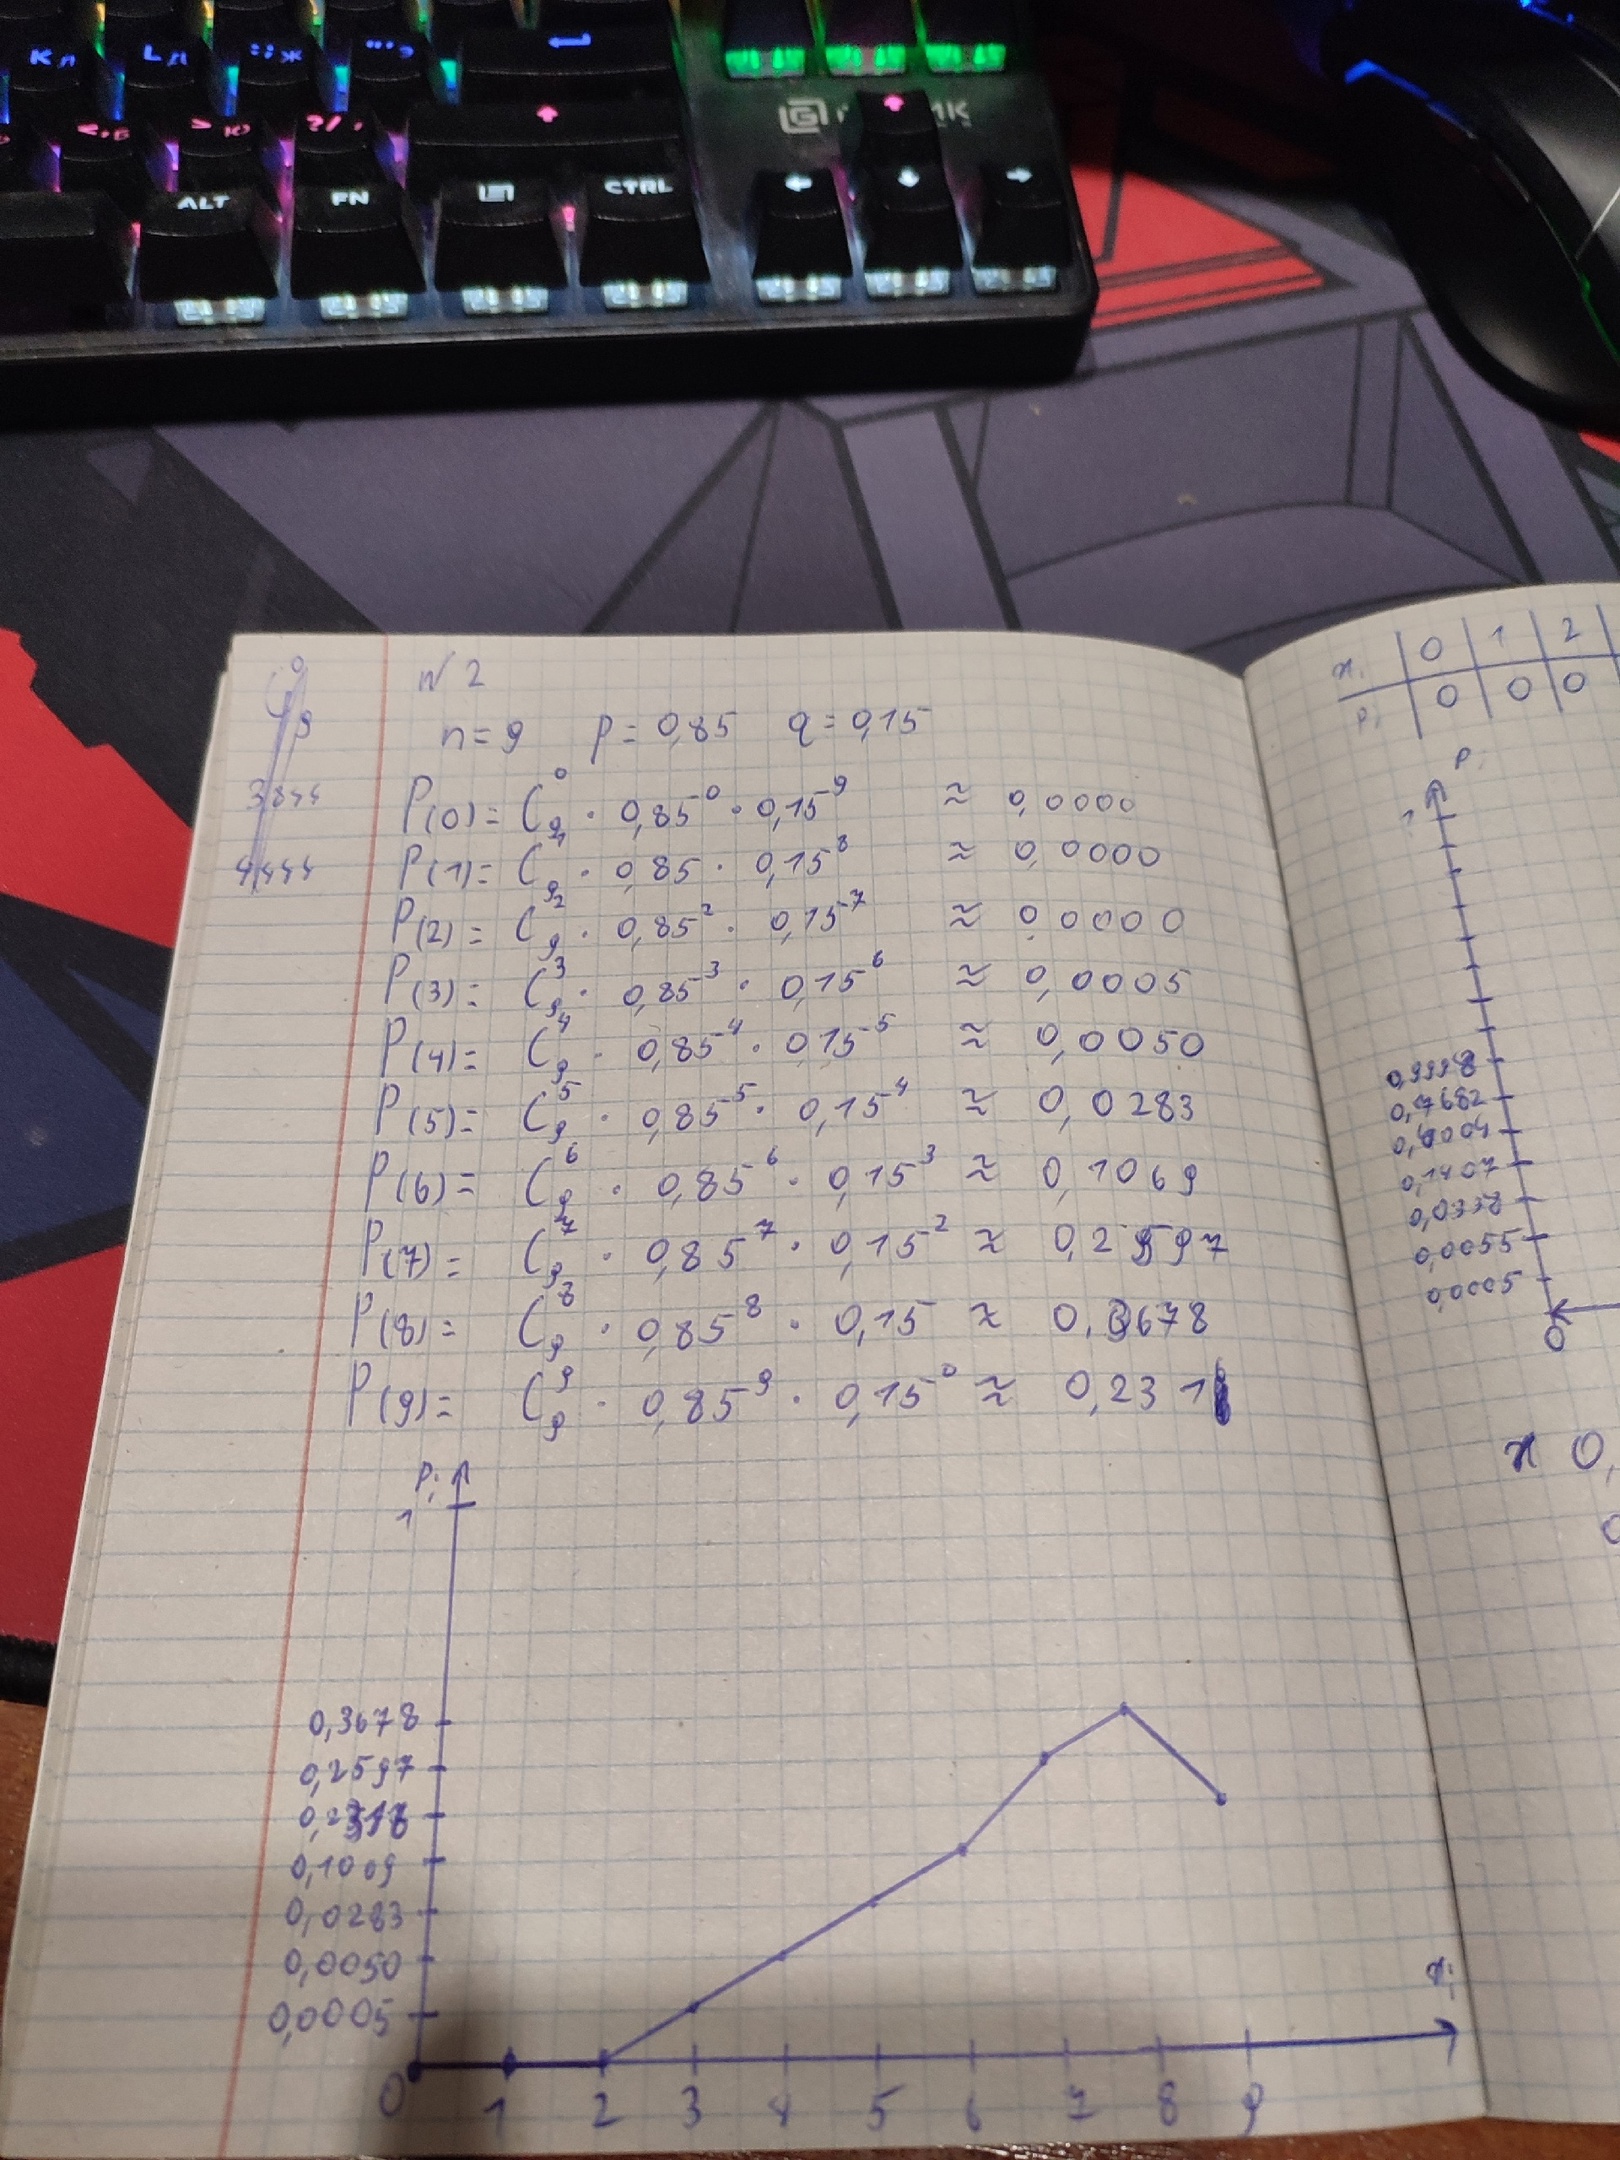 К Л L Д : ; Ж " ' Э
< , Б > . Ю ? /
ALT FN CTRL
№ 2
n = 9 p = 0,85 q = 0,15
P(0) = C₉⁰ · 0,85⁰ · 0,15⁹ ≈ 0,0000
P(1) = C₉¹ · 0,85 · 0,15⁸ ≈ 0,0000
P(2) = C₉² · 0,85² · 0,15⁷ ≈ 0,0000
P(3) = C₉³ · 0,85³ · 0,15⁶ ≈ 0,0005
P(4) = C₉⁴ · 0,85⁴ · 0,15⁵ ≈ 0,0050
P(5) = C₉⁵ · 0,85⁵ · 0,15⁴ ≈ 0,0283
P(6) = C₉⁶ · 0,85⁶ · 0,15³ ≈ 0,1069
P(7) = C₉⁷ · 0,85⁷ · 0,15² ≈ 0,2597
P(8) = C₉⁸ · 0,85⁸ · 0,15 ≈ 0,3678
P(9) = C₉⁹ · 0,85⁹ · 0,15⁰ ≈ 0,231
Pi
1
0,3678
0,2597
0,1069
0,0283
0,0050
0,0005
xi
0 1 2 3 4 5 6 7 8 9
xi 0 1 2
Pi 0 0 0
Pi
1
0,9998
0,7682
0,4004
0,1407
0,0338
0,0055
0,0005
0
x 0,